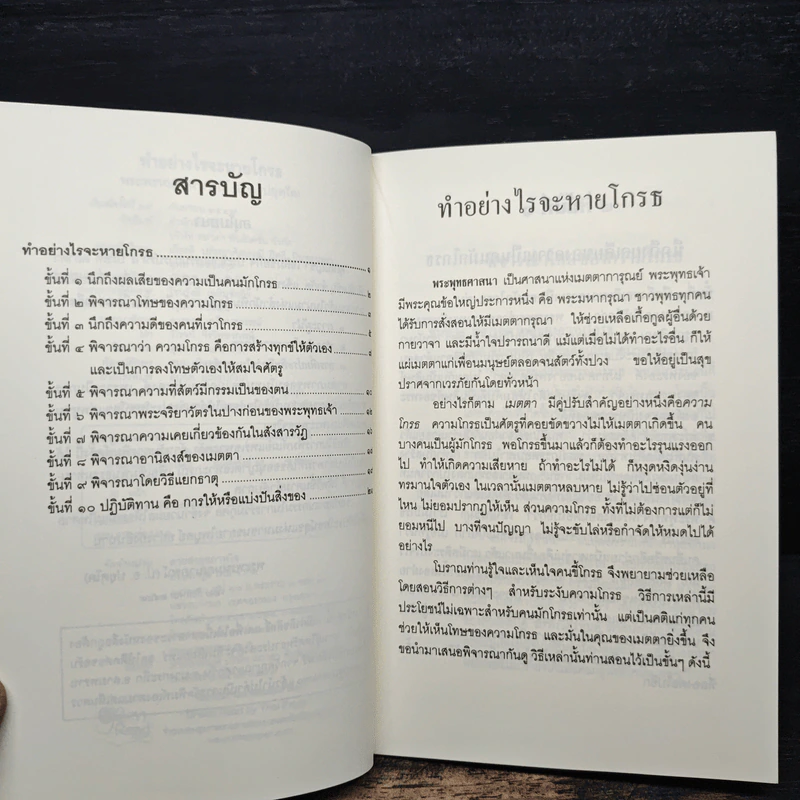 สารบัญ
ทำอย่างไรจะหายโกรธ ๑
ขั้นที่ ๑ นึกถึงผลเสียของความเป็นคนมักโกรธ ๒
ขั้นที่ ๒ พิจารณาโทษของความโกรธ
ขั้นที่ ๓ นึกถึงความดีของคนที่เราโกรธ ๕
ขั้นที่ ๔ พิจารณาว่า ความโกรธ คือการสร้างทุกข์ให้ตัวเอง
และเป็นการลงโทษตัวเองให้สมใจศัตรู
ขั้นที่ ๕ พิจารณาความที่สัตว์มีกรรมเป็นของตน ๑๐
ขั้นที่ ๖ พิจารณาพระจริยาวัตรในปางก่อนของพระพุทธเจ้า
ขั้นที่ ๗ พิจารณาความเคยเกี่ยวข้องกันในสังสารวัฏ
ขั้นที่ ๘ พิจารณาอานิสงส์ของเมตตา
ขั้นที่ ๙ พิจารณาโดยวิธีแยกธาตุ
ขั้นที่ ๑๐ ปฏิบัติทาน คือ การให้หรือแบ่งปันสิ่งของ
ทำอย่างไรจะหายโกรธ
พระพุทธศาสนา เป็นศาสนาแห่งเมตตาการุณย์ พระพุทธเจ้า
มีพระคุณข้อใหญ่ประการหนึ่ง คือ พระมหากรุณา ชาวพุทธทุกคน
ได้รับการสั่งสอนให้มีเมตตากรุณา ให้ช่วยเหลือเกื้อกูลผู้อื่นด้วย
กายวาจา และมีน้ำใจปรารถนาดี แม้แต่เมื่อไม่ได้ทำอะไรอื่น ก็ให้
แผ่เมตตาแก่เพื่อนมนุษย์ตลอดจนสัตว์ทั้งปวง ขอให้อยู่เป็นสุข
ปราศจากเวรภัยกันโดยทั่วหน้า
อย่างไรก็ตาม เมตตา มีคู่ปรับสำคัญอย่างหนึ่งคือความ
โกรธ ความโกรธเป็นศัตรูที่คอยขัดขวางไม่ให้เมตตาเกิดขึ้น คน
บางคนเป็นผู้มักโกรธ พอโกรธขึ้นมาแล้วก็ต้องทำอะไรรุนแรงออก
ไป ทำให้เกิดความเสียหาย ถ้าทำอะไรไม่ได้ ก็หงุดหงิดงุ่นง่าน
ทรมานใจตัวเอง ในเวลานั้นเมตตาหลบหาย ไม่รู้ว่าไปซ่อนตัวอยู่ที่
ไหน ไม่ยอมปรากฏให้เห็น ส่วนความโกรธ ทั้งที่ไม่ต้องการแต่ก็ไม่
ยอมหนีไป บางทีจนปัญญา ไม่รู้จะขับไล่หรือกำจัดให้หมดไปได้
อย่างไร
โบราณท่านรู้ใจและเห็นใจคนขี้โกรธ จึงพยายามช่วยเหลือ
โดยสอนวิธีการต่างๆ สำหรับระงับความโกรธ วิธีการเหล่านี้มี
ประโยชน์ไม่เฉพาะสำหรับคนมักโกรธเท่านั้น แต่เป็นคติแก่ทุกคน
ช่วยให้เห็นโทษของความโกรธ และมั่นในคุณของเมตตายิ่งขึ้น จึง
ขอนำมาเสนอพิจารณากันดู วิธีเหล่านั้นท่านสอนไว้เป็นขั้นๆ ดังนี้